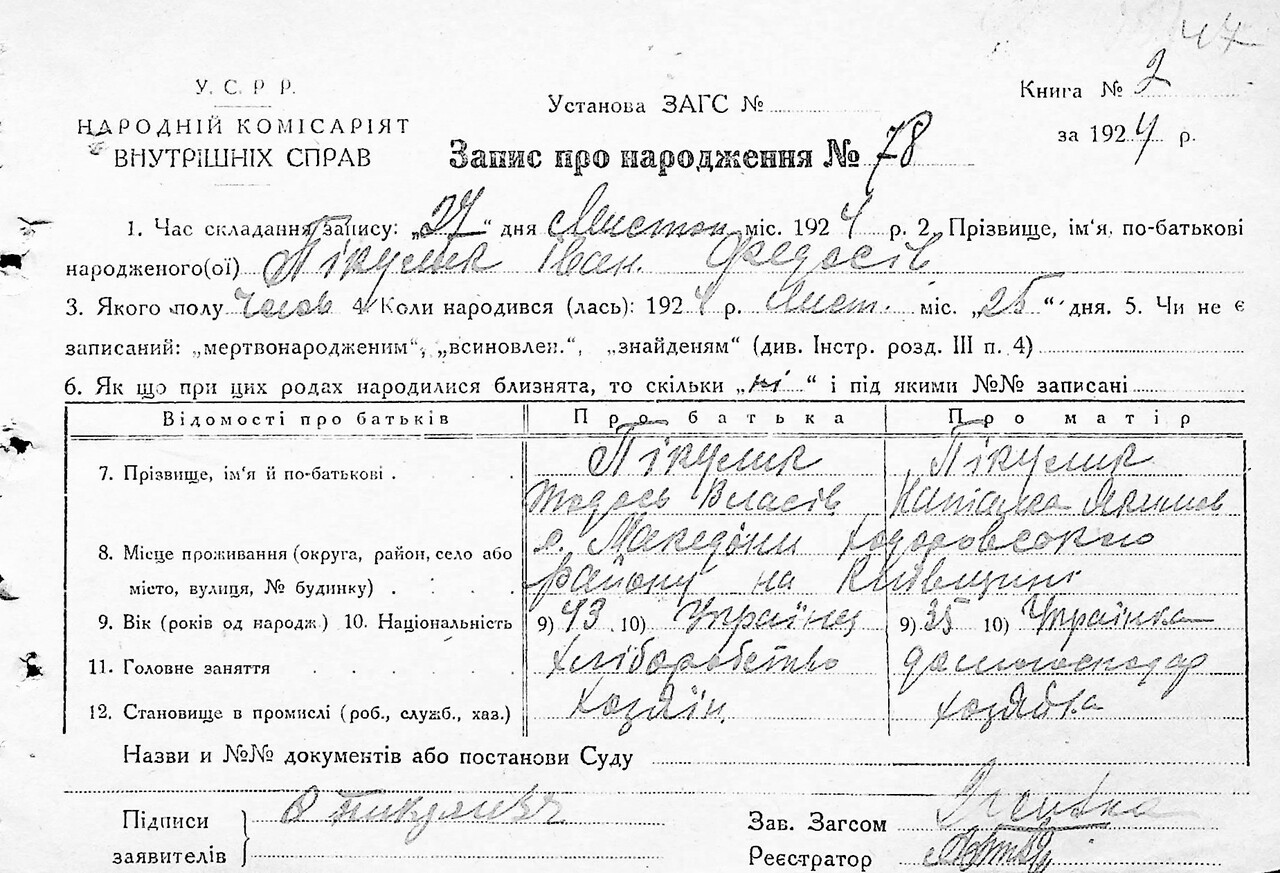 47
У. С. Р Р.
НАРОДНІЙ КОМІСАРІЯТ
ВНУТРІШНІХ СПРАВ
Установа ЗАГС №
Книга № 2
за 1924 р.
Запис про народження № 78
1. Час складання запису: „27“ дня Листоп міс. 1924 р. 2. Прізвище, ім'я, по-батькові
народженого(ої) Пікулик Іван Федосів
3. Якого полу чолов 4. Коли народився (лась): 1924 р. Лист. міс. „25“ дня. 5. Чи не є
записаний: „мертвонародженим“, „всиновлен.“, „знайденям“ (див. Інстр. розд. III п. 4)
6. Як що при цих родах народилися близнята, то скільки „ні“ і під якими №№ записані
Відомості про батьків Про батька Про матір
7. Прізвище, ім'я й по-батькові Пікулик Пікулик
Тодось Власів Наталка
8. Місце проживання (округа, район, село або с. Македони Ходоровського
місто, вулиця, № будинку) району на Київщині
9. Вік (років од народж) 10. Національність 9) 43 10) Українец 9) 35 10) Українка
11. Головне заняття Хліборобство домогосподар
12. Становище в промислі (роб., служб., хаз.) Хозяїн. хозяйка
Назви и №№ документів або постанови Суду
Підписи
заявителів
Зав. Загсом
Реєстратор